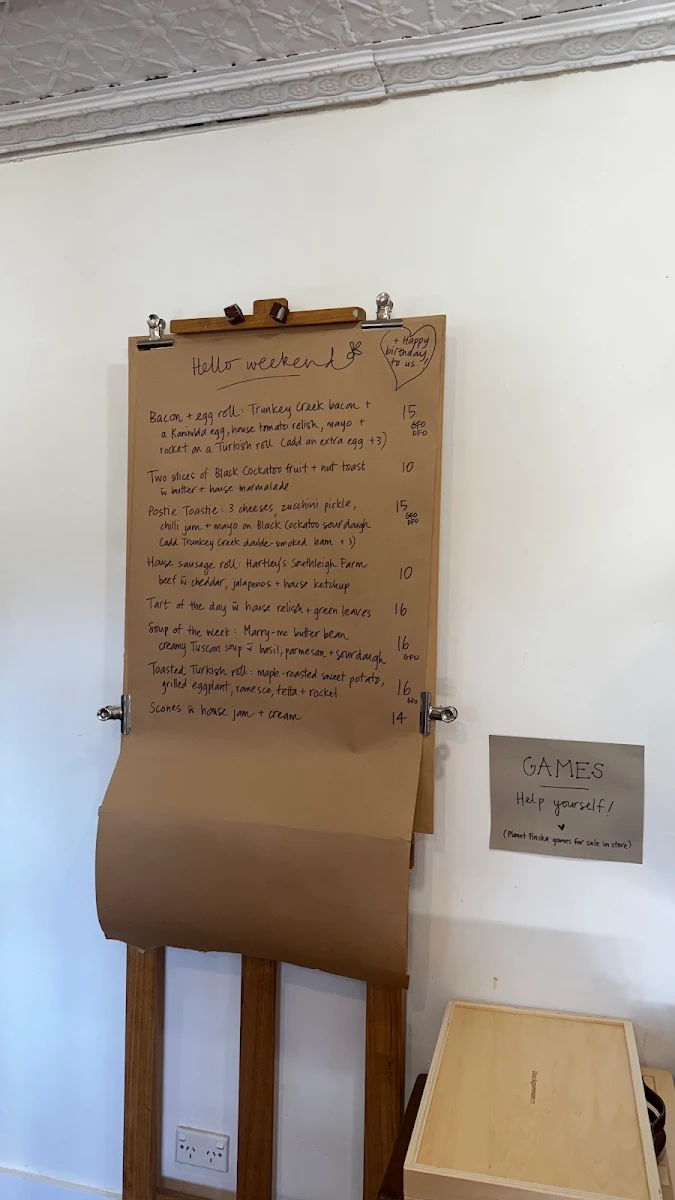 Hello weekend
+ Happy
birthday
to us!
Bacon + egg roll: Trunkey Creek bacon + 15
a Kanimbla egg, house tomato relish, mayo + GFO
rocket on a Turkish roll (add an extra egg +3) DFO
Two slices of Black Cockatoo fruit + nut toast 10
w butter + house marmalade
Postie Toastie: 3 cheeses, zucchini pickle, 15
chilli jam + mayo on Black Cockatoo sourdough GFO
(add Trunkey Creek double-smoked ham +3) DFO
House sausage roll: Hartley's Southleigh Farm
beef w cheddar, jalapenos + house ketchup 10
Tart of the day w house relish + green leaves 16
Soup of the week: Marry-me butter bean 16
creamy Tuscan soup w basil, parmesan + sourdough GFO
Toasted Turkish roll: maple-roasted sweet potato, 16
grilled eggplant, romesco, fetta + rocket GFO
Scones w house jam + cream 14
GAMES
Help yourself!
(Planet Finska games for sale in store)
Backgammon